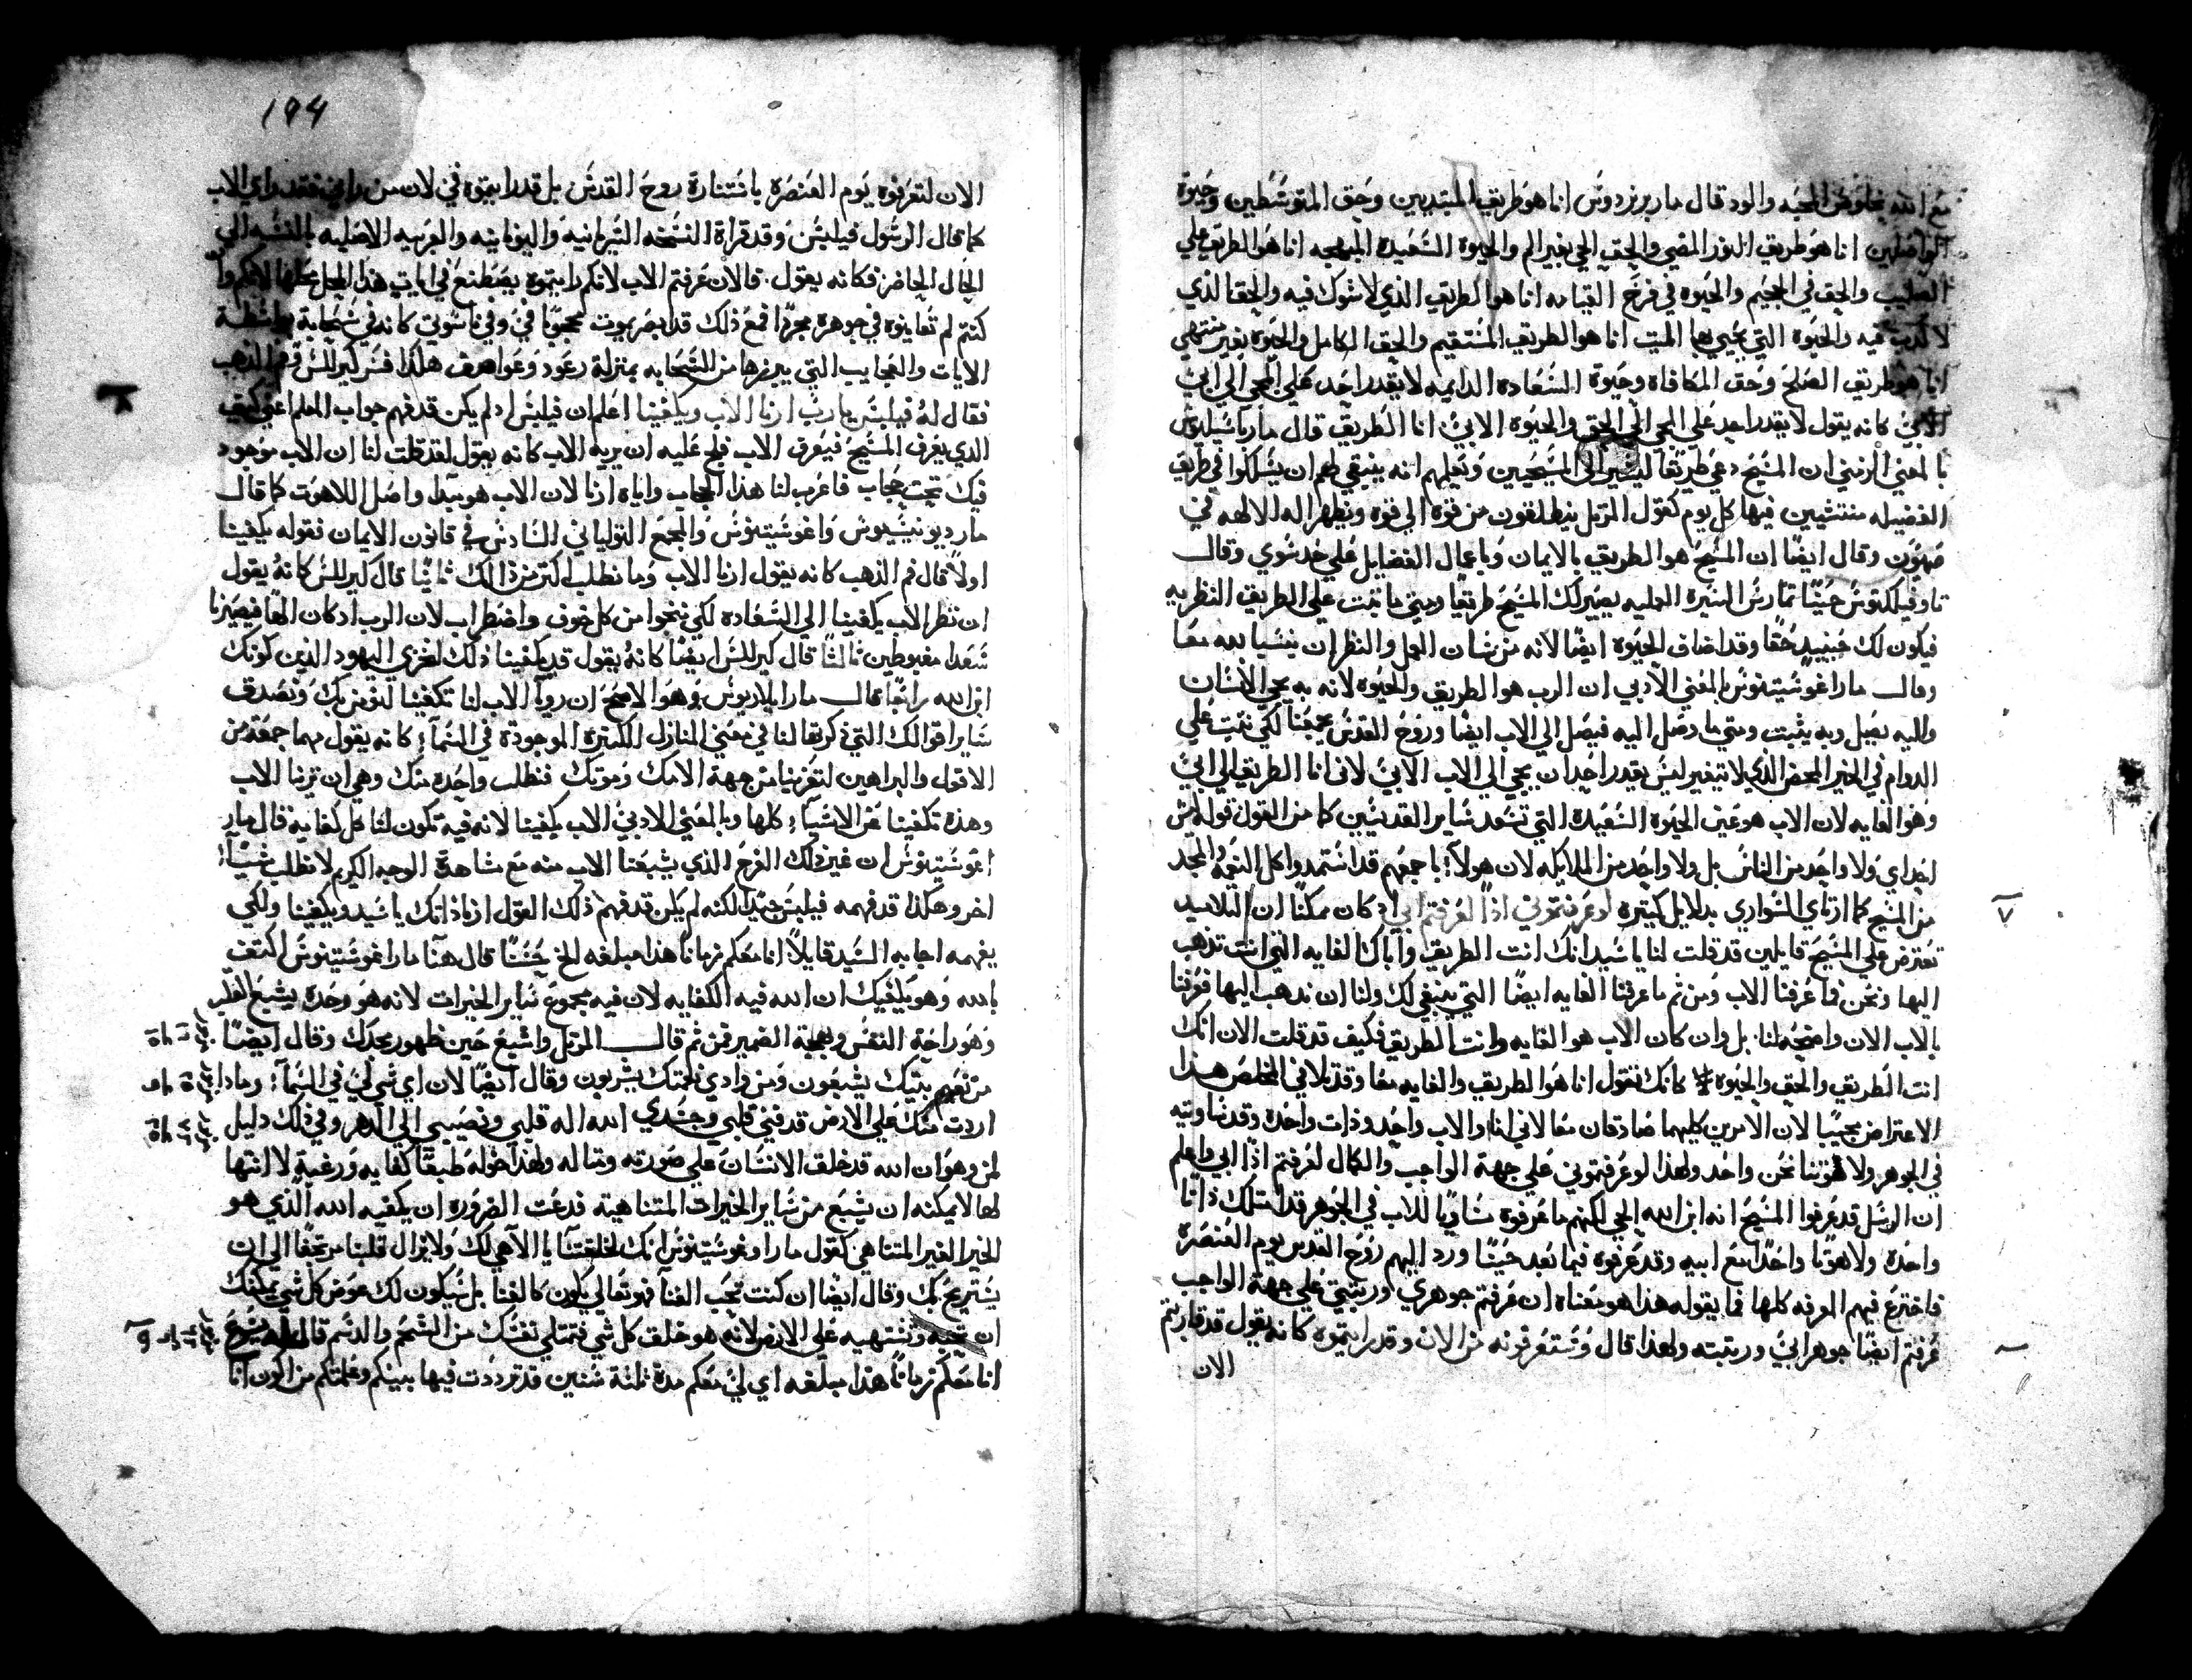 مع الله بخلوص المحبه والود قال مار برنردوس انا هو طريق المبتديين وحق المتوسطين وحيوة
الواصلين انا هو طريق النور المضي والحق الحي بغير الم والحيوة السعيدة المبهجه انا هو الطريق علي
الصليب والحق في الجحيم والحيوه في فرح القيامه انا هو الطريق الذي لا شوك فيه والحق الذي
لا كدب فيه والحيوه التي يحيي بها الميت انا هو الطريق المستقيم والحق الكامل والحيوه بغير منتهي
انا هو طريق الصلح وحق المكافاة وحيوة السعاده الدايمه لا يقدر احد علي المجي الي ابي
الا بي كانه يقول لا يقدر احد علي المجي الي الحق والحيوه الا بي انا الطريق قال مار باسيليوس
بالمعني الرمزي ان المسيح دعي طريقا ليشير الي المسيحيين ويعلمهم انه ينبغي لهم ان يسلكوا في طريق
الفضيله منتشيين فيها كل يوم كقول المرتل ينطلقون من قوة الي قوه ويظهر اله الالهه في
صهيون وقال ايضا ان المسيح هو الطريق بالايمان وباعمال الفضايل علي حد سوي وقال
تاوفيلكتوس حينا تمارس السيرة العمليه يصير لك المسيح طريقا ومتي ما تبت علي الطريق النظريه
فيكون لك حينيد حقا وقد اضاف الحيوه ايضا لانه من شان العمل والنظر ان ينشيا به معا
وقال مار اغوسيتنوس بالمعني الادبي ان الرب هو الطريق والحيوه لانه به يجي الانسان
واليه يصل وبه يثبت ومتي ما وصل اليه فيصل الي الاب ايضا وروح القدس يجمعنا لكي نثبت علي
الدوام في الخير المحض الذي لا تغيير ليس يقدر احد ان يجي الي الاب الا بي لاني انا الطريق الي ابي
وهو الغايه لان الاب هو عين الحيوه السعيدة التي تسعد ساير القديسين كما من القول قوله ليس
احد اي ولا واحد من الناس بل ولا واحد من الملايكه لان هولاء باجمعهم قد استمدوا كل النعمه والمجد
من المسيح كما ارتاي السواري بدلايل كتيره لو عرفتموني اذا لعرفتم ابي اد كان ممكنا ان التلاميد
تعترض علي المسيح قايلين قد قلت لنا يا سيد انك انت الطريق واباك الغايه التي انت تذهب
اليها ونحن فما عرفنا الاب ومن ثم ما عرفنا الغايه ايضا التي ينبغي لك ولنا ان ندهب اليها فعرفنا
بالاب الان واضحه لنا بل وان كان الاب هو الغايه وانت الطريق فكيف قد قلت الان انك
انت الطريق والحق والحيوه كانك تقول انا هو الطريق والغايه معا وقد تلافي المخلص هذا
الاعتراض مجيبا لان الامرين كليهما صادقان معا لاني انا والاب واحد وذات واحده وقد تساويته
في الجوهر ولاهوتنا نحن واحد ولهذا لو عرفتموني علي جهة الواجب والكمال لعرفتم اذا ابي واعلم
ان الرسل قد عرفوا المسيح انه ابن الله الحي لكنهم ما عرفوه مساويا للاب في الجوهر قد امتلك ذاتا
واحده ولاهوتا واحدا مع ابيه وقد عرفوه فيما بعد حينا ورد اليهم روح القدس يوم العنصره
فاخترع فيهم المعرفه كلها فما يقوله هذا هو معناه ان عرفتم جوهري ورتبتي علي جهة الواجب
عرفتم ايضا جوهر ابي ورتبته ولهذا قال وستعرفونه من الان وقد رايتموه كانه يقول قد قاربتم
الان
٧
194
الان لتعرفوه يوم العنصره باستنارة روح القدس بل قد رايتموه في لان من راني فقد راي الاب
كما قال الرسول فيلبس وقد قراة النسخه السريانيه واليونانيه والعربيه الاصليه بالنسبه الي
الحال الحاضر فكانه يقول فالان عرفتم الاب لانكم رايتموه يصطنع في ايات هذا العمل محلها لانكم وان
كنتم لم تعاينوه في جوهره مجردا فمع ذلك قد ابصرتموه محجوبا في وفي ناسوتي كانه في سحابة بواسطة
الايات والعجايب التي يبرزها من السحابه بمنزلة رعود وعواصف هكذا فسر كيرللس وفم الذهب
فقال له فيلبس يا رب ارنا الاب ويكفينا اعلم ان فيلبس اد لم يكن قد فهم جواب المعلم اعني كيف
الذي يعرف المسيح فيعرف الاب فلج عليه ان يريه الاب كانه يقول لقد قلت لنا ان الاب موجود
فيك تحت حجاب فاعرب لنا هذا الحجاب واياه ارنا لان الاب هو مبدا واصل اللاهوت كما قال
مار ديونيسيوس واغوسيتنوس والمجمع التوليداني السادس في قانون الايمان فقوله يكفينا
اولا قال فم الذهب كانه يقول ارنا الاب وما نطلب اكتر من ذالك ثانيا قال كيرللس كانه يقول
ان نظر الاب يكفينا الي السعاده لكي ننجوا من كل خوف واضطراب لان الرب اد كان الها فيصيرنا
سعدا مغبوطين ثالثا قال كيرللس ايضا كانه يقول قد يكفينا ذلك لخزي اليهود الذين كونك
ابن الله رابعا قال مار ايلاريوس وهو الاصح ان رويا الاب لنا تكفينا لنومن بك ونصدق
ساير اقوالك التي ذكرتها لنا في معني المنازل الكثيرة الموجودة في السماء كانه يقول مهما جمعته من
الاقول والبراهين لتعزينا من جهة الامك وموتك فنطلب واحده منك وهي ان ترنا الاب
وهذه تكفينا عن الاشياء كلها وبالمعني الادبي الاب يكفينا لانه فيه تكون لنا كل كفايه قال مار
اغوسيتنوس ان غير ذلك الفرح الذي يشبعنا الاب منه مع مشاهدة الوجه الكريم لا نطلب شيا
اخر وهكذا قد فهمه فيلبس جيدا لكنه لم يكن قد فهم ذلك القول ارنا ذاتك يا سيد ويكفينا ولكي
يفهمه اجابه السيد قايلا انا معكم زمانا هذا مبلغه الخ حسنا قال هنا مار اغوسيتنوس اكتف
بالله وهو يكفيك ان الله فيه الكفايه لان فيه مجموع ساير الخيرات لانه هو وحده يشبع العقل
وهو راحة النفس وبهجة الضمير فمن ثم قال المرتل واشبع حين ظهور مجدك وقال ايضا
من نعيم بيتك يشبعون ومن وادي نعمتك يشربون وقال ايضا لان اي شي لي في السماء وماذا
اردت منك علي الارض قد فني قلبي وجسدي الله اله قلبي ونصيبي الي الدهر وفي ذلك دليل
لمن وهو ان الله قد خلق الانسان علي صورته ومثاله ولهذا خوله طبعا كفايه ورغبة لا انتها
لها لا يمكنه ان يشبع من ساير الخيرات المتناهية فدعت الضروره ان يكفيه الله الذي هو
الخير الغير المتناهي كقول مار اوغوسيتنوس انك لخلقتنا يا الاهي لك ولا يزال قلبنا مرتجفا الي ان
يستريح بك وقال ايضا ان كنت تحب الغنا فهو تعالي يكون كالغنا بل سيكون لك عوض كل شي يمكنك
ان تحبه وتشتهيه علي الارض لانه هو خلق كل شي فتمتلي نفسك من الشحم والدسم قال له يسوع
انا معكم زمانا هذا مبلغه اي لي معكم مدة ثلثة سنين قد ترددت فيها بينكم وعلمتكم من اكون انا